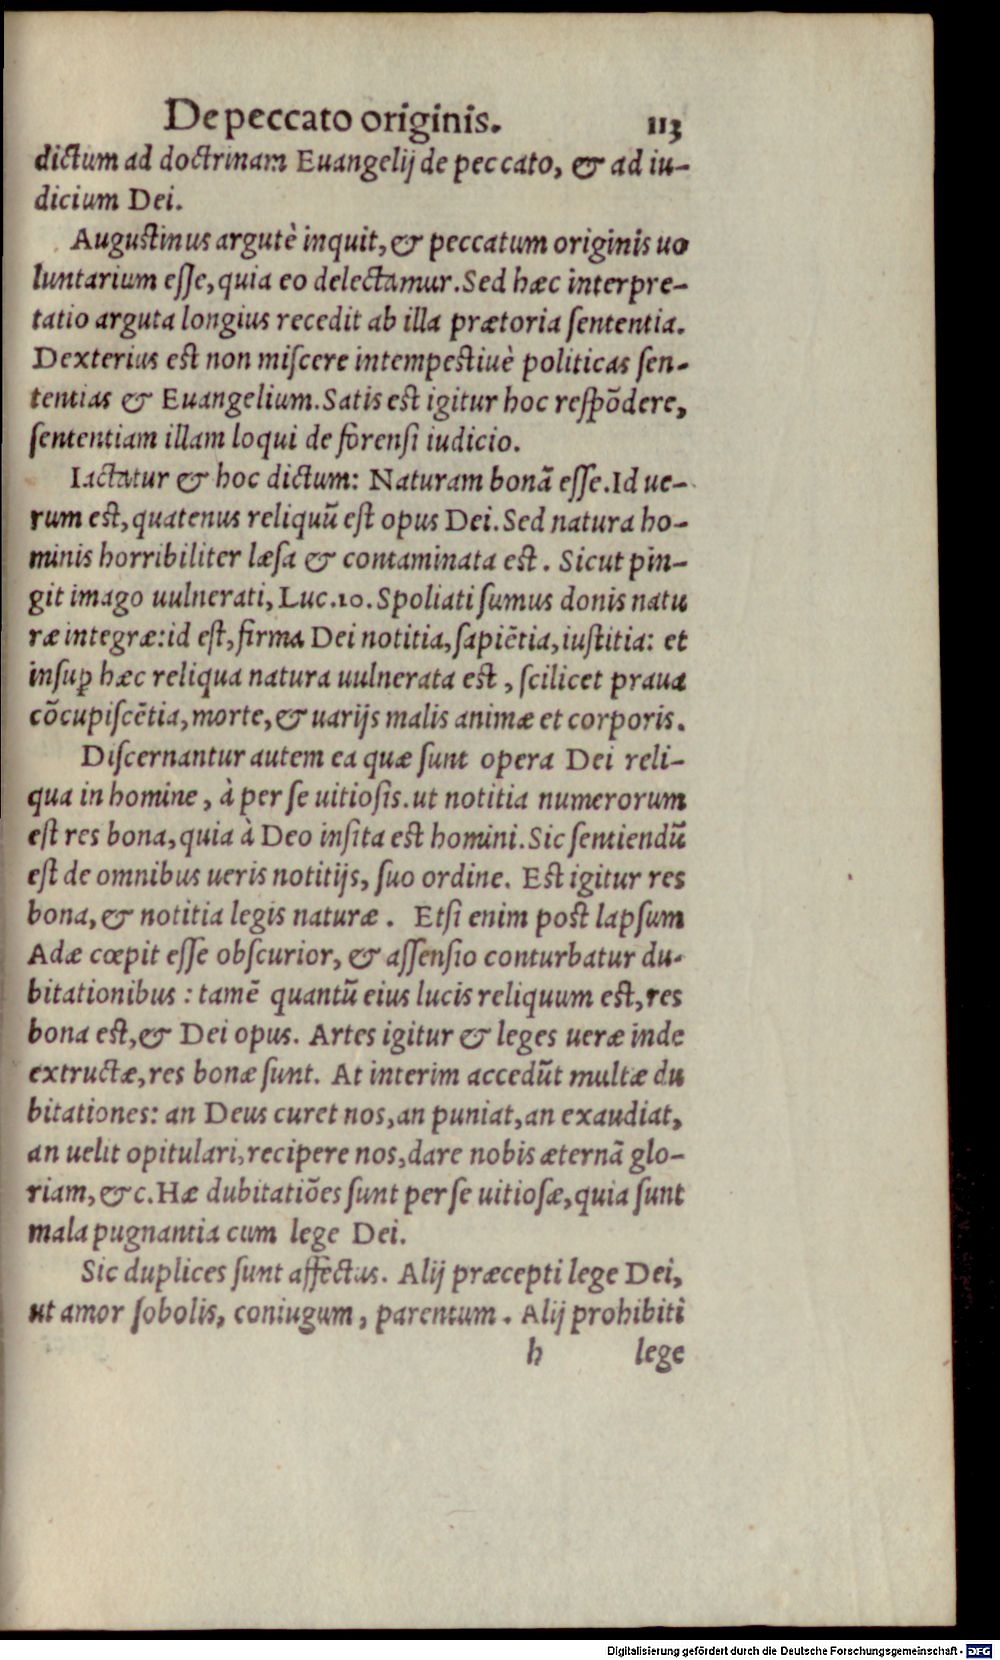 De peccato originis. 113
dictum ad doctrinam Euangelij de peccato, & ad iu-
dicium Dei.
Augustinus argutè inquit, & peccatum originis uo
luntarium esse, quia eo delectamur. Sed hæc interpre-
tatio arguta longius recedit ab illa prætoria sententia.
Dexterius est non miscere intempestiuè politicas sen-
tentias & Euangelium. Satis est igitur hoc respōdere,
sententiam illam loqui de forensi iudicio.
Iactatur & hoc dictum: Naturam bonā esse. Id ue-
rum est, quatenus reliquū est opus Dei. Sed natura ho-
minis horribiliter læsa & contaminata est. Sicut pin-
git imago uulnerati, Luc. 10. Spoliati sumus donis natu
ræ integræ: id est, firma Dei notitia, sapiētia, iustitia: et
insuꝑ hæc reliqua natura uulnerata est, scilicet praua
cōcupiscētia, morte, & uarijs malis animæ et corporis.
Discernantur autem ea quæ sunt opera Dei reli-
qua in homine, à per se uitiosis. ut notitia numerorum
est res bona, quia à Deo insita est homini. Sic sentiendū
est de omnibus ueris notitijs, suo ordine. Est igitur res
bona, & notitia legis naturæ. Etsi enim post lapsum
Adæ cœpit esse obscurior, & assensio conturbatur du-
bitationibus: tamē quantū eius lucis reliquum est, res
bona est, & Dei opus. Artes igitur & leges ueræ inde
extructæ, res bonæ sunt. At interim accedūt multæ du
bitationes: an Deus curet nos, an puniat, an exaudiat,
an uelit opitulari, recipere nos, dare nobis æternā glo-
riam, &c. Hæ dubitatiōes sunt per se uitiosæ, quia sunt
mala pugnantia cum lege Dei.
Sic duplices sunt affectus. Alij præcepti lege Dei,
ut amor sobolis, coniugum, parentum. Alij prohibiti
h lege
Digitalisierung gefördert durch die Deutsche Forschungsgemeinschaft - DFG